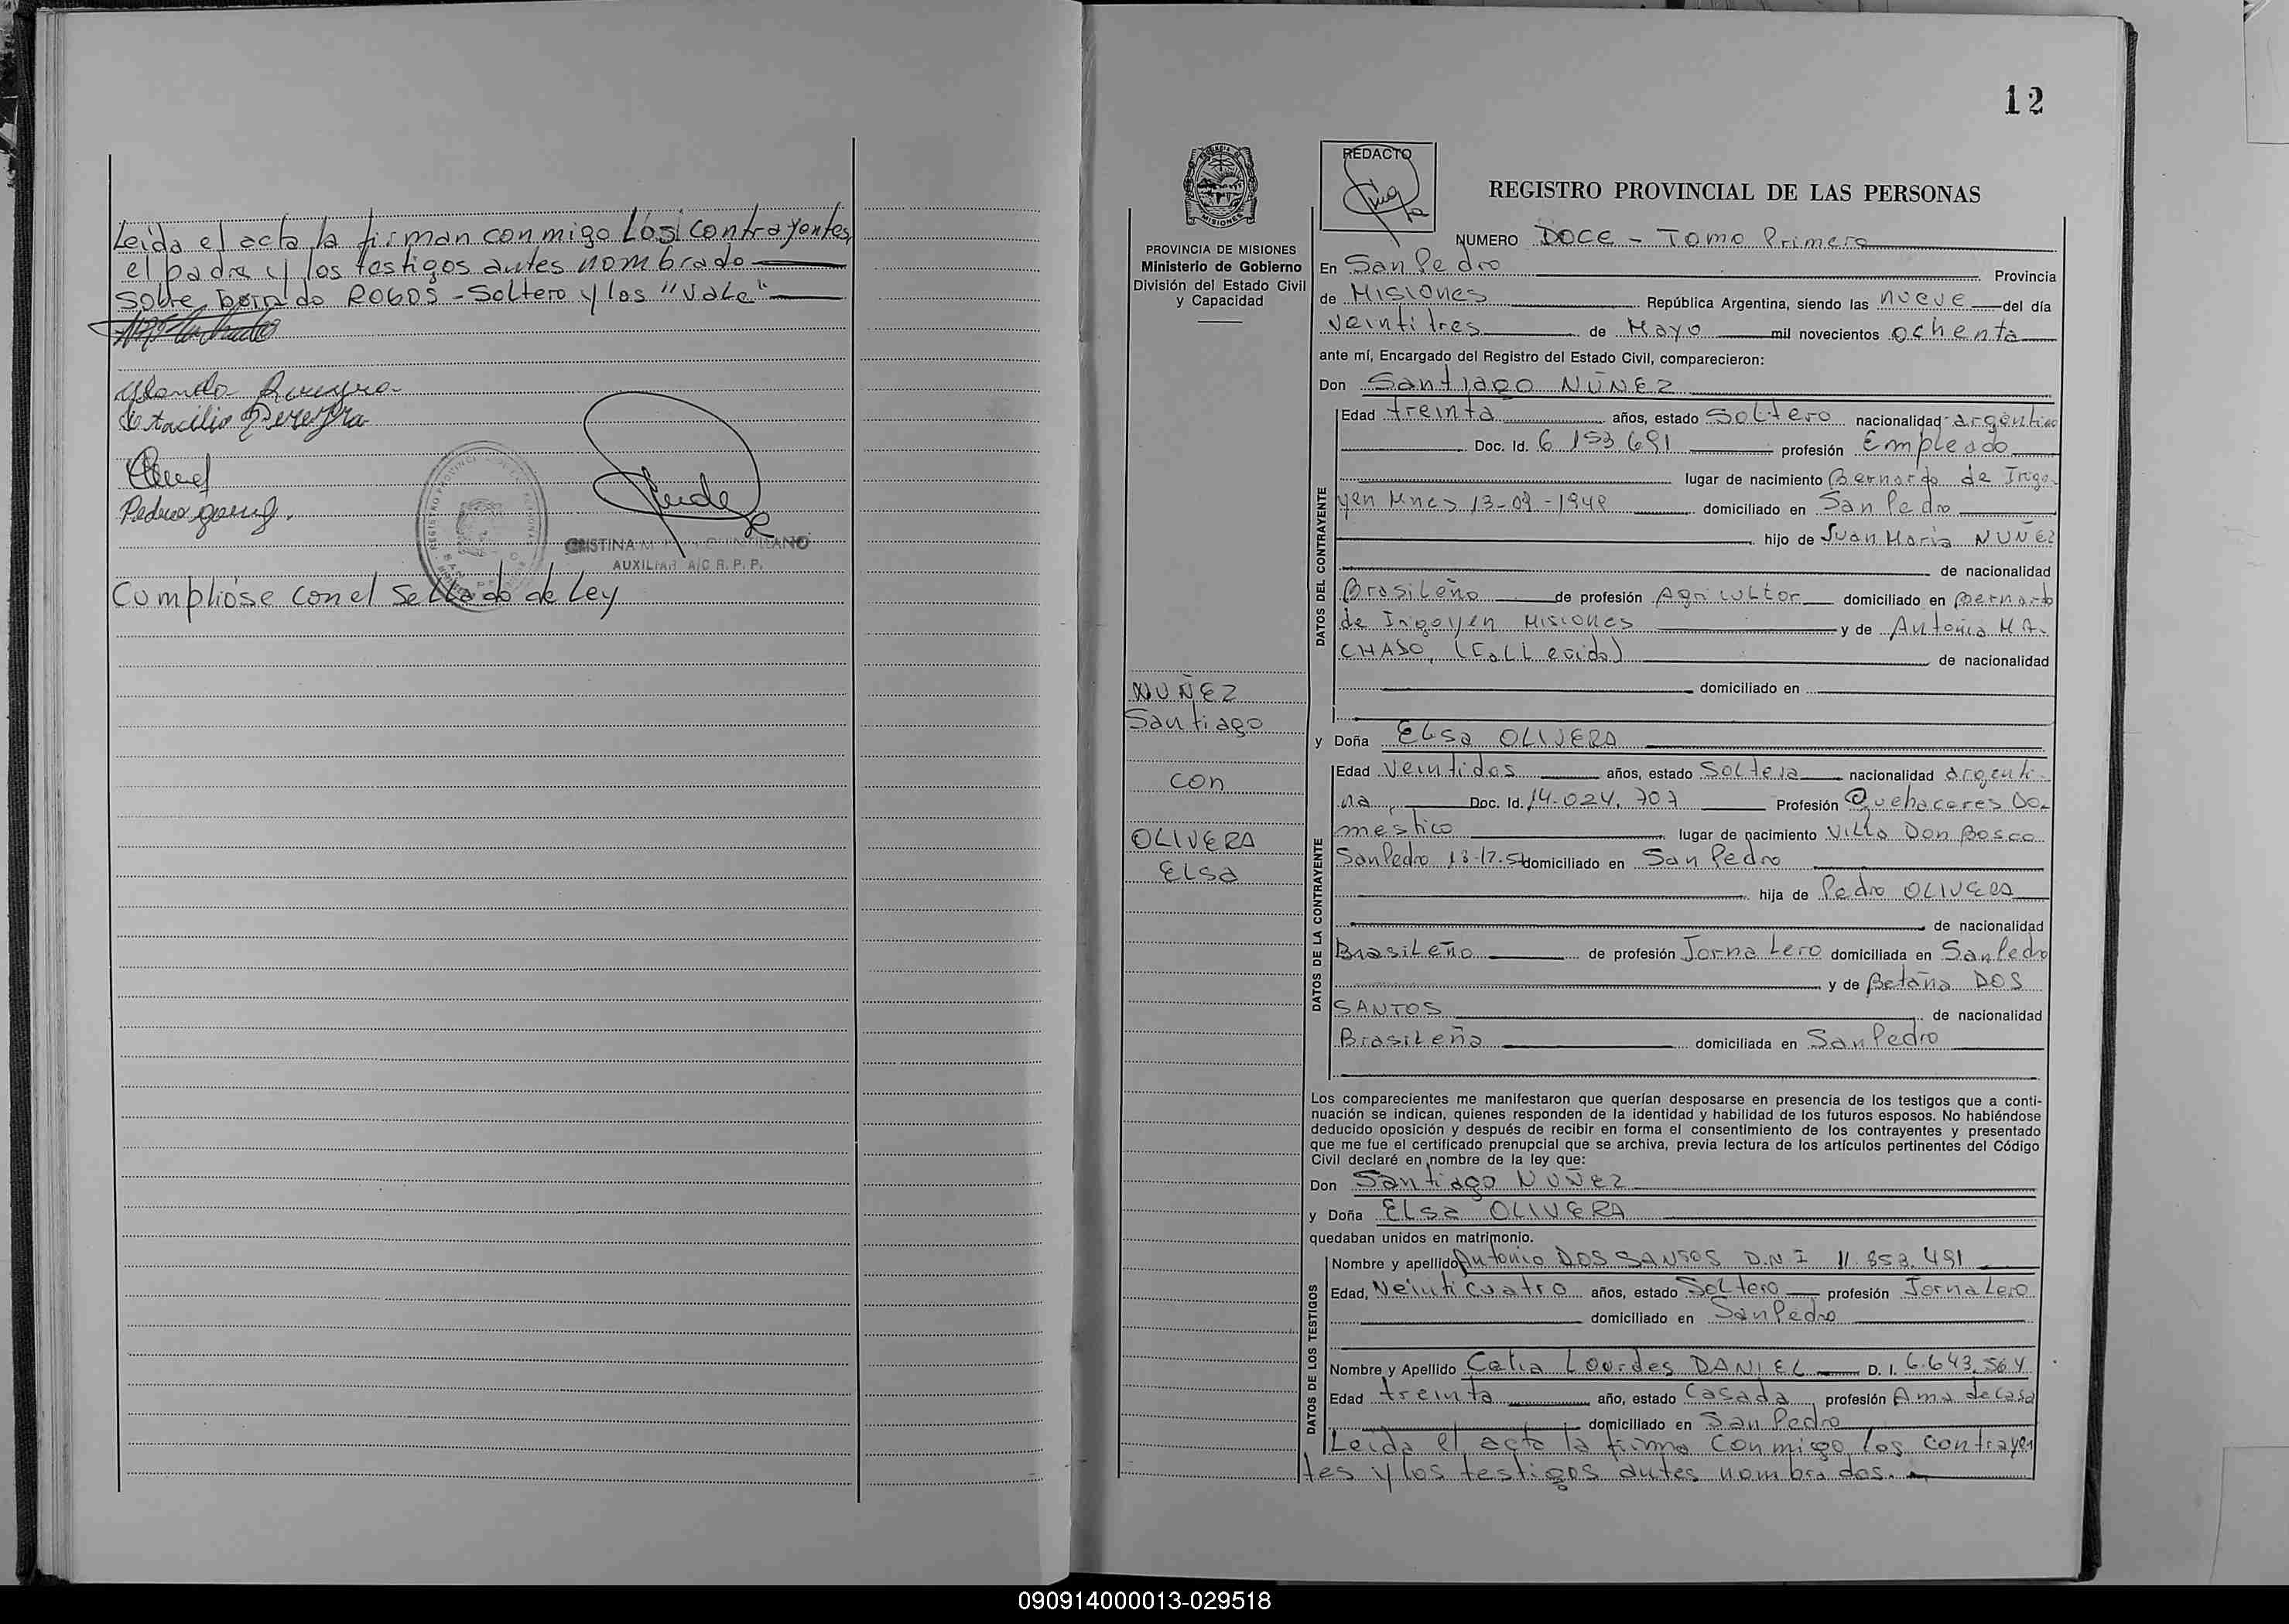 Leída el acta la firman conmigo Los contrayentes,
el padre y los testigos antes nombrado
Sobre borrado ROGOS - Soltero y los "Vale"
Pereyra
Pedro
CRISTINA
AUXILIAR A/C R. P. P.
Cumplióse con el Sellado de Ley
12
REDACTO
REGISTRO PROVINCIAL DE LAS PERSONAS
PROVINCIA DE MISIONES
Ministerio de Gobierno
División del Estado Civil
y Capacidad
NUMERO DOCE - Tomo Primero
En San Pedro Provincia
de Misiones República Argentina, siendo las nueve del día
veintitres de Mayo mil novecientos ochenta
ante mí, Encargado del Registro del Estado Civil, comparecieron:
Don Santiago NUÑEZ
DATOS DEL CONTRAYENTE
Edad treinta años, estado Soltero nacionalidad argentino
Doc. Id. 6.153.691 profesión Empleado
lugar de nacimiento Bernardo de Irigo-
yen Mnes domiciliado en San Pedro
hijo de Juan María NUÑEZ
de nacionalidad
Brasileño de profesión Agricultor domiciliado en Bernardo
de Irigoyen Misiones y de Antonia MA-
CHADO, (Fallecida) de nacionalidad
domiciliado en
NUÑEZ
Santiago
con
OLIVERA
Elsa
y Doña Elsa OLIVERA
DATOS DE LA CONTRAYENTE
Edad Veintidos años, estado Soltera nacionalidad argenti-
na, Doc. Id. 14.024.707 Profesión Quehaceres Do-
mestico lugar de nacimiento Villa Don Bosco
San Pedro domiciliado en San Pedro
hija de Pedro OLIVERA
de nacionalidad
Brasileño de profesión Jornalero domiciliada en San Pedro
y de Betaña DOS
SANTOS de nacionalidad
Brasileña domiciliada en San Pedro
Los comparecientes me manifestaron que querían desposarse en presencia de los testigos que a conti-
nuación se indican, quienes responden de la identidad y habilidad de los futuros esposos. No habiéndose
deducido oposición y después de recibir en forma el consentimiento de los contrayentes y presentado
que me fue el certificado prenupcial que se archiva, previa lectura de los artículos pertinentes del Código
Civil declaré en nombre de la ley que:
Don Santiago NUÑEZ
y Doña Elsa OLIVERA
quedaban unidos en matrimonio.
DATOS DE LOS TESTIGOS
Nombre y apellido Antonio DOS SANTOS D.N.I 11.853.491
Edad, Veinticuatro años, estado Soltero profesión Jornalero
domiciliado en San Pedro
Nombre y Apellido Celia Lourdes DANIEL D. I. 6.643.564
Edad treinta año, estado Casada profesión Ama de Casa
domiciliado en San Pedro
Leida el acta la firma conmigo los contrayen
tes y los testigos antes nombrados.
090914000013-029518